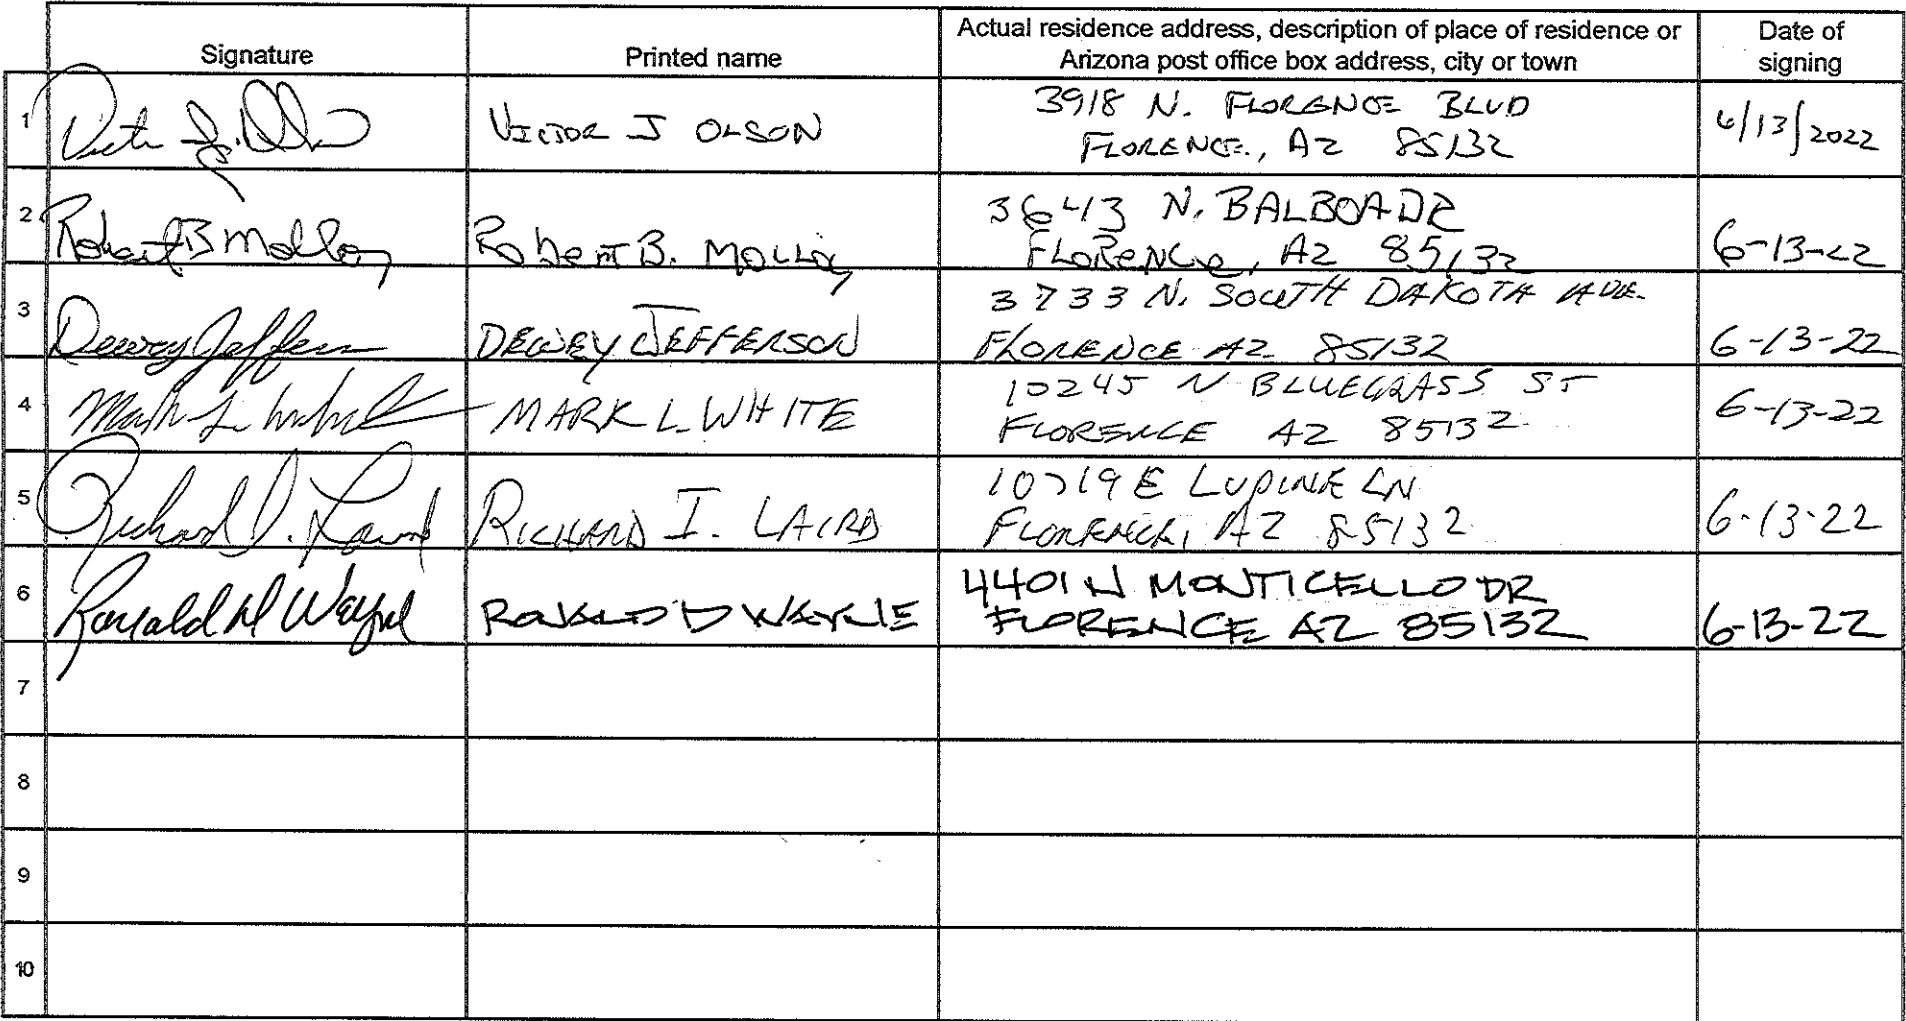 Signature
Printed name
Actual residence address, description of place of residence or
Arizona post office box address, city or town
Date of
signing
1
VICTOR J OLSON
3918 N. FLORENCE BLVD
FLORENCE, AZ 85132
6/13/2022
2
Robert B Molloy
Robert B. Molloy
3643 N. BALBOA DR
FLORENCE, AZ 85132
6-13-22
3
Dewey Jefferson
DEWEY JEFFERSON
3733 N. SOUTH DAKOTA AVE.
FLORENCE AZ 85132
6-13-22
4
Mark L. White
MARK L. WHITE
10245 N BLUEGRASS ST
FLORENCE AZ 85132
6-13-22
5
Richard I. Laird
RICHARD I. LAIRD
10719 E LUPINE LN
FLORENCE, AZ 85132
6-13-22
6
Ronald D Wayne
RONALD D WAYNE
4401 N MONTICELLO DR
FLORENCE AZ 85132
6-13-22
7
8
9
10